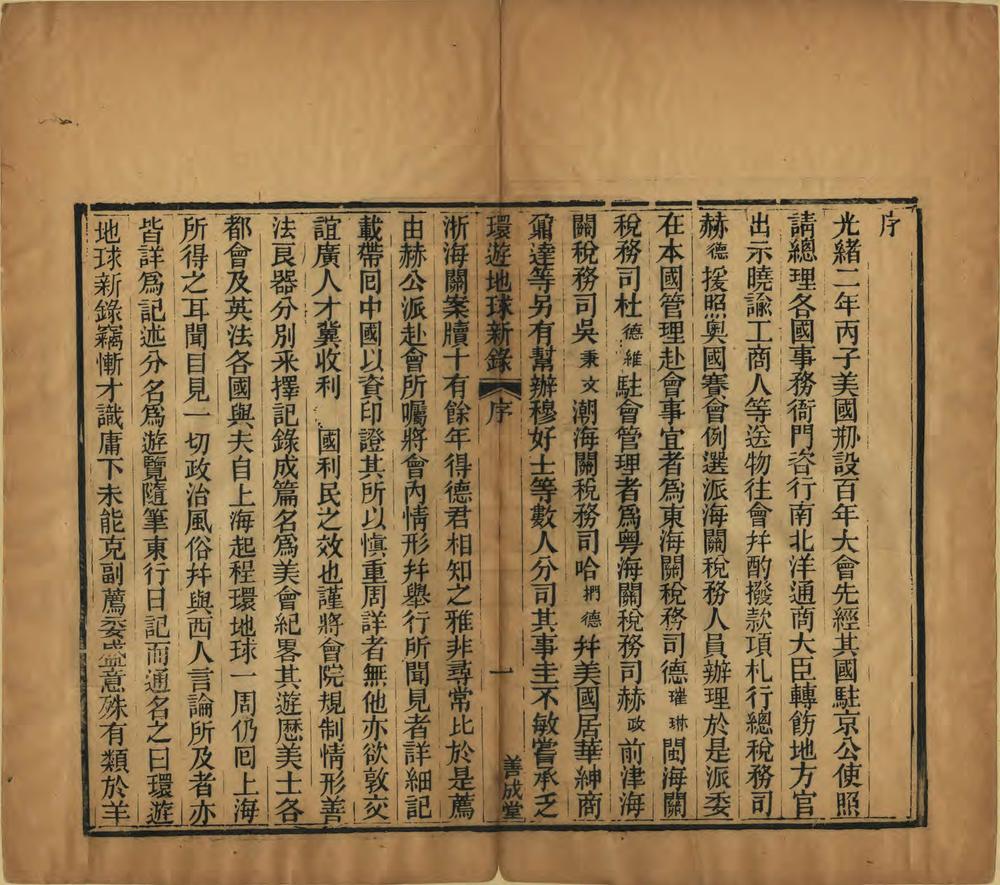 序
光緒二年丙子美國刱設百年大會先經其國駐京公使照
請總理各國事務衙門咨行南北洋通商大臣轉飭地方官
出示曉諭工商人等送物往會幷酌撥款項札行總稅務司
赫德援照奧國賽會例選派海關稅務人員辦理於是派委
在本國管理赴會事宜者爲東海關稅務司德璀琳閩海關
稅務司杜德維駐會管理者爲粤海關稅務司赫政前津海
關稅務司吳秉文潮海關稅務司哈捫德幷美國居華紳商
鼐達等另有幫辦穆好士等數人分司其事圭不敏嘗承乏
環遊地球新錄 序 一 善成堂
浙海關案牘十有餘年得德君相知之雅非尋常比於是薦
由赫公派赴會所囑將會內情形幷舉行所聞見者詳細記
載帶囘中國以資印證其所以愼重周詳者無他亦欲敦交
誼廣人才冀收利 國利民之效也謹將會院規制情形善
法良器分別采擇記錄成篇名爲美會紀畧其遊歷美士各
都會及英法各國與夫自上海起程環地球一周仍囘上海
所得之耳聞目見一切政治風俗幷與西人言論所及者亦
皆詳爲記述分名爲遊覽隨筆東行日記而通名之曰環遊
地球新錄竊慚才識庸下未能克副薦委盛意殊有類於羊